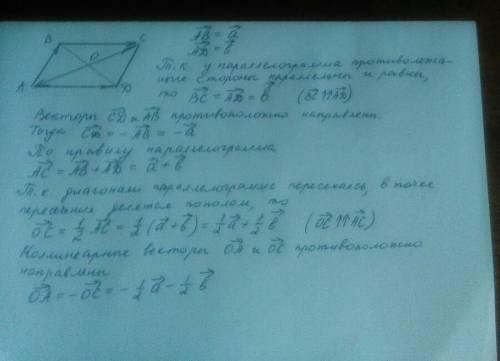 B C
O
A D
AB⃗ = a⃗
AD⃗ = b⃗
Т.к. у параллелограмма противополож-
ные стороны параллельны и равны,
то BC⃗ = AD⃗ = b⃗ (BC⃗ ↑↑ AD⃗)
Векторы CD⃗ и AB⃗ противоположно направлены.
Тогда CD⃗ = -AB⃗ = -a⃗
По правилу параллелограмма
AC⃗ = AB⃗ + AD⃗ = a⃗ + b⃗
Т.к. диагонали параллелограмма пересекаясь, в точке
пересечения делятся пополам, то
OC⃗ = 1/2 AC⃗ = 1/2 (a⃗ + b⃗) = 1/2 a⃗ + 1/2 b⃗ (OC⃗ ↑↑ AC⃗)
Коллинеарные векторы OA⃗ и OC⃗ противоположно
направлены
OA⃗ = -OC⃗ = -1/2 a⃗ - 1/2 b⃗